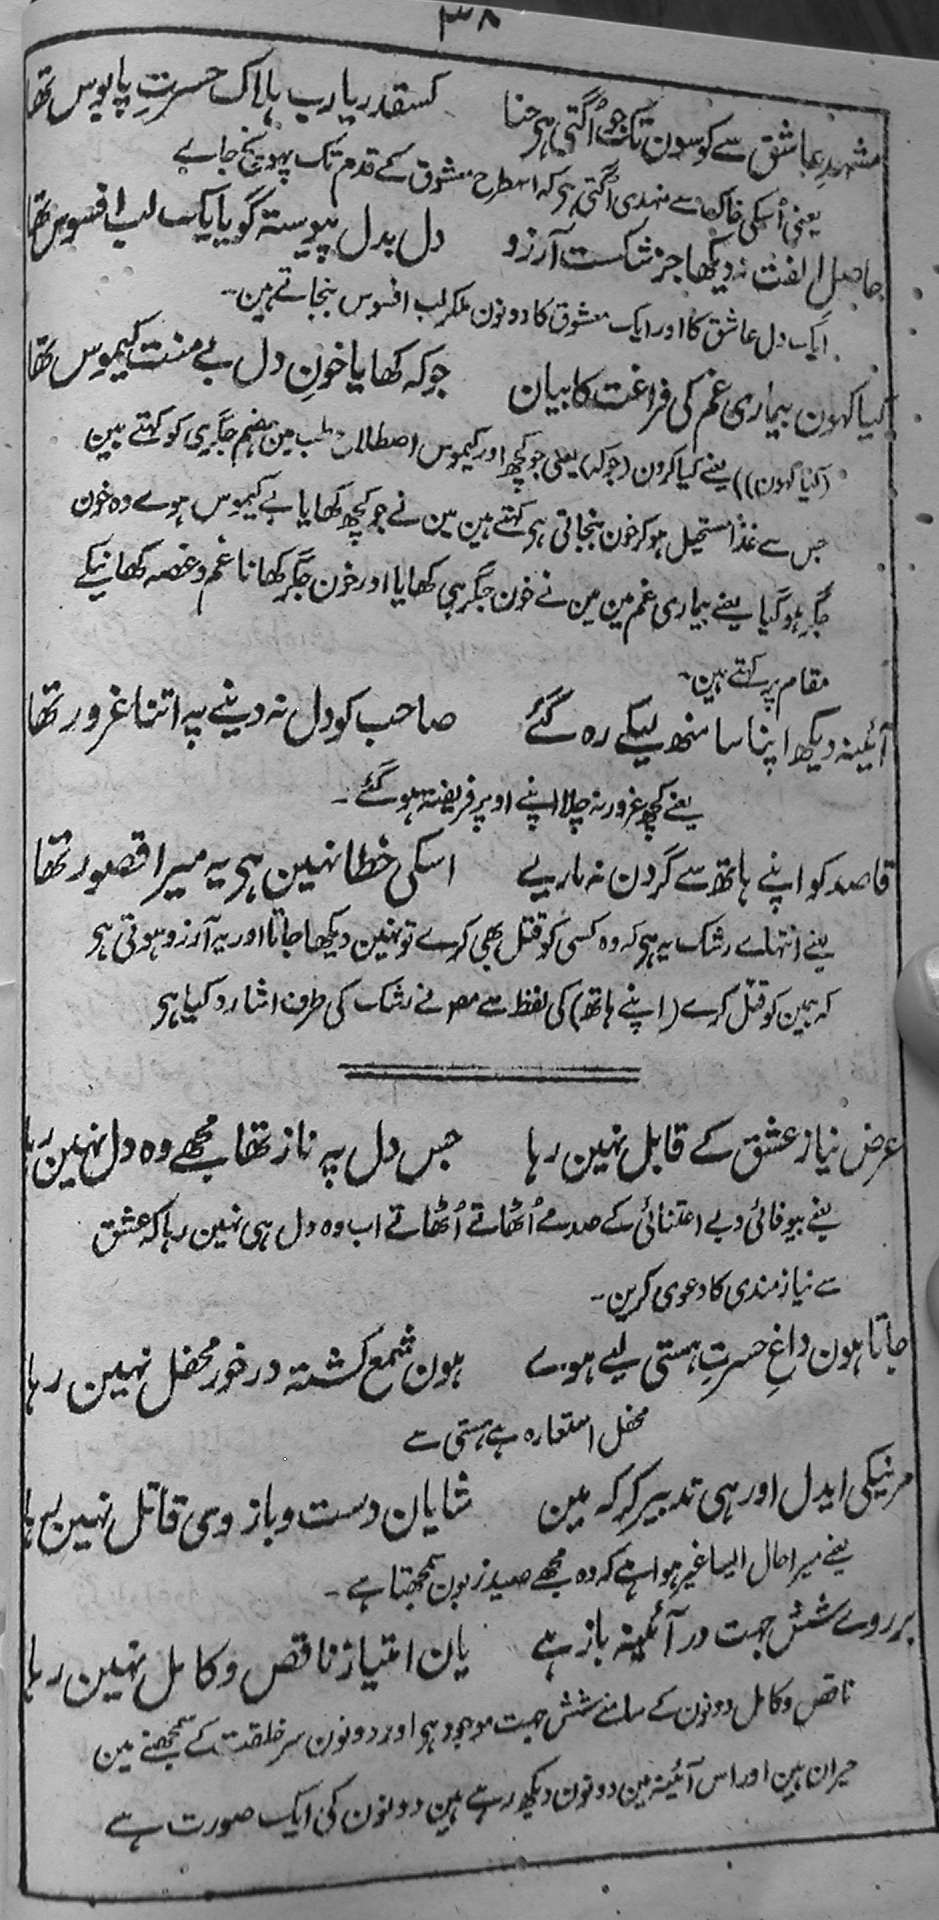 ۳۸
مشہدِ عاشق سے کوسون تک جو اُگتی ہی حنا کسقدر یارب ہلاک حسرتِ پابوس تھا
یعنی اُسکی خاک سے منہدی اُگتی ہی کہ اسطرح معشوق کے قدم تک پہونچ جاے
حاصل الفت نہ دیکھا جز شکست آرزو دل بدل پیوستہ گویا یک لب افسوس تھا
ایک دل عاشق کا اور ایک معشوق کا دونون ملکر لب افسوس بنجاتے ہین۔
کیا کہون بیماری غم کی فراغت کا بیان جو کہ کھایا خونِ دل بے منت کیموس تھا
(کیا کہون)) یعنے کیا کرون (جو کہ) یعنی جو کچھ اور کیموس اصطلاح طب مین ہضم جگری کو کہتے ہین
جس سے غذا مستحیل ہو کر خون بنجاتی ہی کہتے ہین مین نے جو کچھ کھایا بے کیموس ہوے وہ خون
جگر ہو گیا یعنے بیماری غم مین مین نے خون جگر ہی کھایا اور خون جگر کھانا غم و غصہ کھانیکے
مقام پر کہتے ہین۔
آئینہ دیکھ اپنا سا منھ لیکے رہ گئے صاحب کو دل نہ دینے پہ اتنا غرور تھا
یعنے کچھ غرور نہ چلا اپنے اوپر فریفتہ ہو گئے۔
قاصد کو اپنے ہاتھ سے گردن نہ ماریے اسکی خطا نہین ہی یہ میرا قصور تھا
یعنے انتہاے رشک یہ ہی کہ وہ کسی کو قتل بھی کرے تو نہین دیکھا جاتا اور یہ آرزو ہوتی ہی
کہ ہمین کو قتل کرے (اپنے ہاتھ) کی لفظ سے مصؔ نے رشک کی طرف اشارہ کیا ہی
عرض نیاز عشق کے قابل نہین رہا جس دل پہ ناز تھا مجھے وہ دل نہین رہا
یعنے بیوفائی و بے اعتنائی کے صدمے اُٹھاتے اُٹھاتے اب وہ دل ہی نہین رہا کہ عشق
سے نیازمندی کا دعوی کرین۔
جاتا ہون داغِ حسرتِ ہستی لیے ہوے ہون شمع کشتہ درخور محفل نہین رہا
محفل استعارہ ہے ہستی سے
مرنیکی ایدل اور ہی تدبیر کر کہ مین شایان دست و بازوی قاتل نہین رہا
یعنے میرا حال ایسا غیر ہوا ہے کہ وہ مجھے صید زبون سمجھتا ہے۔
بر روے شش جہت در آئینہ باز ہے یان امتیاز ناقص و کامل نہین رہا
ناقص و کامل دونون کے سامنے شش جہت موجود ہو اور دونون سر خلقت کے سمجھنے مین
حیران ہین اور اس آئینہ مین دونون دیکھ رہے ہین دونون کی ایک صورت ہے